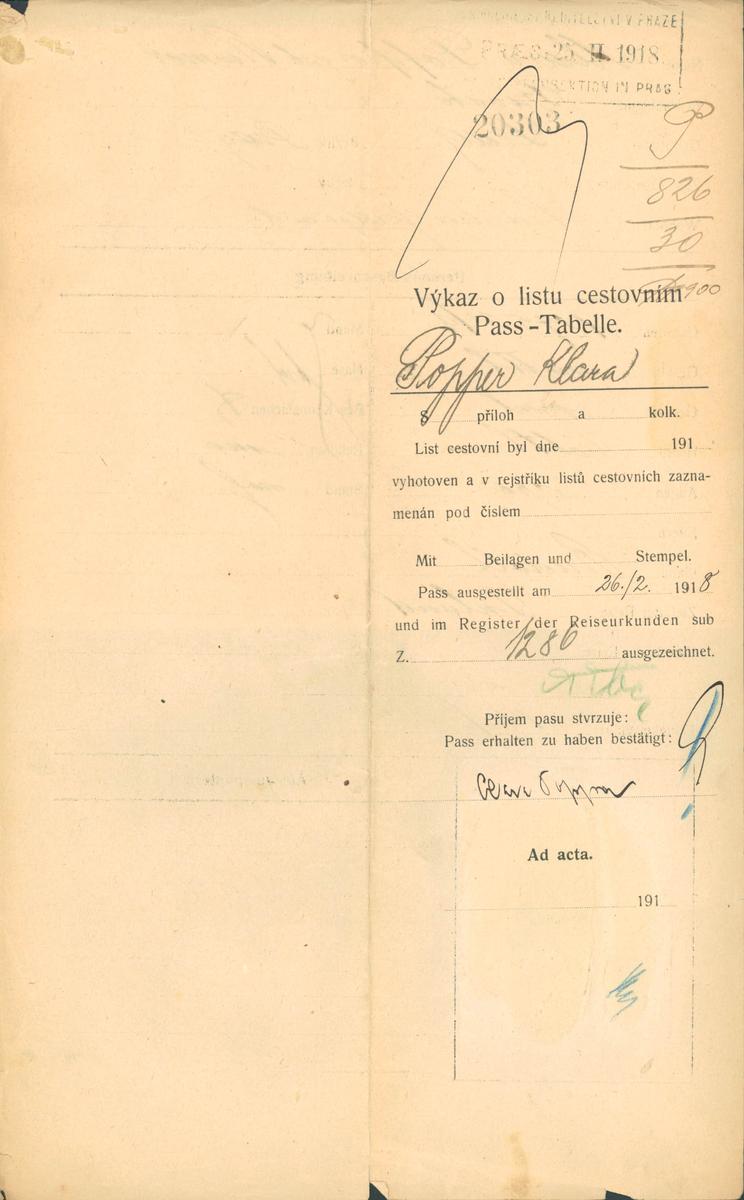 ŘEDITELSTVÍ V PRAZE
PRÆS. 25 II. 1918
IN PRAG
20303
P
826
30
Výkaz o listu cestovním
Pass-Tabelle.
Popper Klara
S příloh a kolk.
List cestovní byl dne 191
vyhotoven a v rejstříku listů cestovních zazna-
menán pod číslem
Mit Beilagen und Stempel.
Pass ausgestellt am 26./2. 1918
und im Register der Reiseurkunden sub
Z. 1286 ausgezeichnet.
Příjem pasu stvrzuje:
Pass erhalten zu haben bestätigt:
Clara Popper
Ad acta.
191